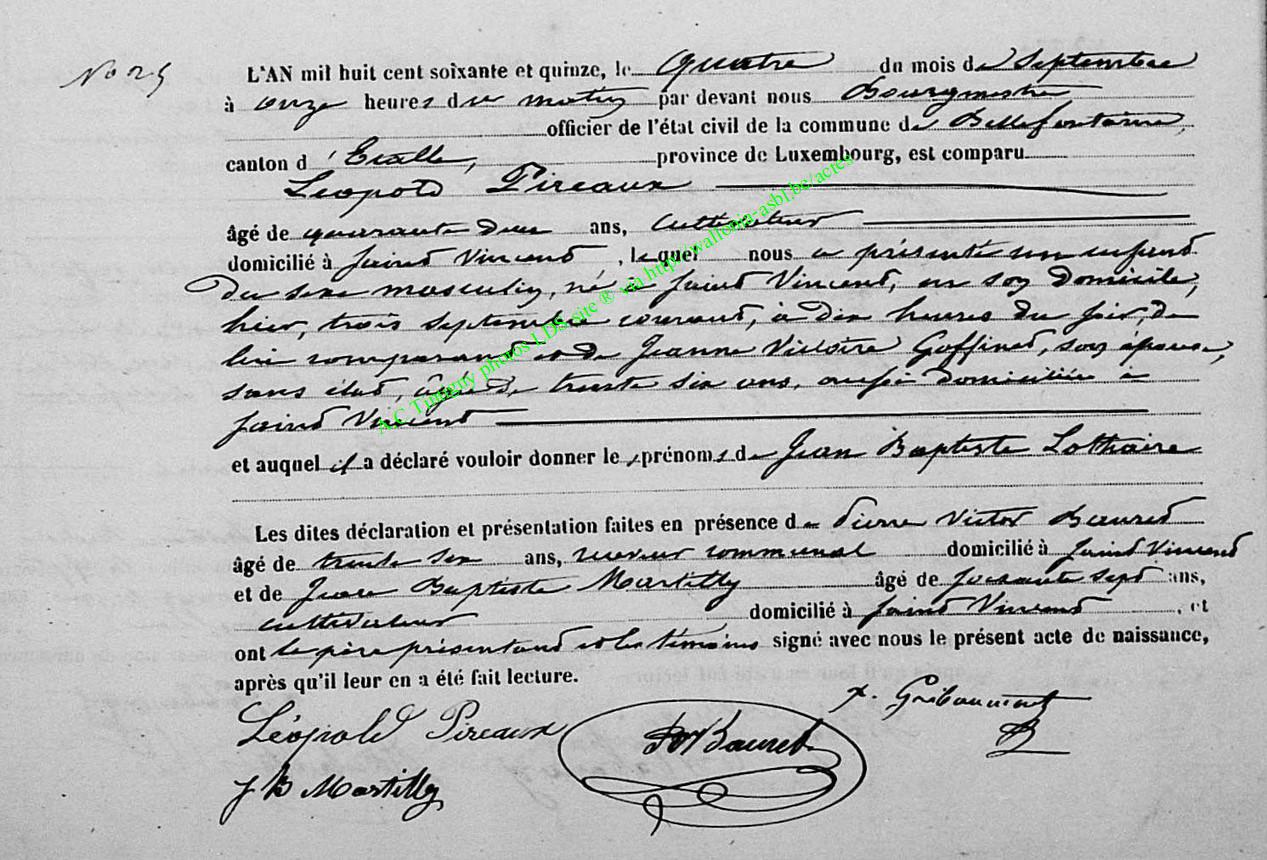 No 25
L'AN mil huit cent soixante et quinze, le quatre du mois de Septembre
à onze heures du matin par devant nous Bourgmestre
officier de l'état civil de la commune de Bellefontaine,
canton d'Etalle, province de Luxembourg, est comparu
Léopold Pireaux
âgé de quarante deux ans, cultivateur
domicilié à Saint Vincent, lequel nous a présenté un enfant
du sexe masculin, né à Saint Vincent, en son domicile,
hier, trois septembre courant, à dix heures du soir, de
lui comparant et de Jeanne Victoire Goffinet, son épouse,
sans état, âgée de trente six ans, aussi domiciliée à
Saint Vincent
et auquel il a déclaré vouloir donner les prénoms de Jean Baptiste Lothaire
Les dites déclaration et présentation faites en présence de Pierre Victor Bauret
âgé de trente six ans, receveur communal domicilié à Saint Vincent
et de Jean Baptiste Martilly âgé de soixante sept ans,
cultivateur domicilié à Saint Vincent, et
ont le père présentant et les témoins signé avec nous le présent acte de naissance,
après qu'il leur en a été fait lecture.
Léopold Pireaux
PV Bauret
Gribaumont
J B Martilly
A.C Tintigny photos LDS site ® via http://wallonia-asbl.be/actes